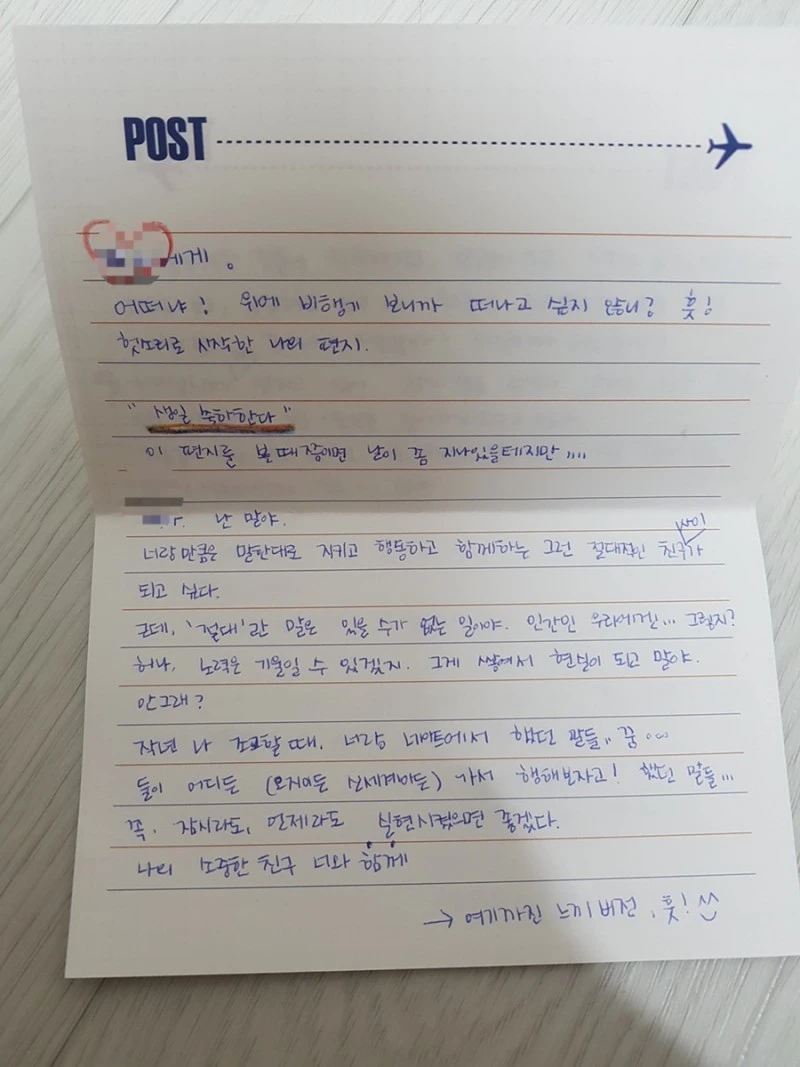 POST
에게。
어떠냐! 위에 비행기 보니까 떠나고 싶지 않니? 훗!
헛소리로 시작한 나의 편지.
"생일 축하한다"
이 편지를 볼 때쯤이면 날이 좀 지나있을테지만....
난 말야.
너랑만큼은 말한대로 지키고 행동하고 함께하는 그런 절대적인 친구사이가
되고 싶다.
근데, '절대'란 말은 있을 수가 없는 일이야. 인간인 우리에겐... 그렇지?
허나, 노력은 기울일 수 있겠지. 그게 쌓여서 현실이 되고 말야.
안그래?
작년 나 조교할때, 너랑 네이트에서 했던 말들.. 꿈...
둘이 어디든 (오지이든 신세계이든) 가서 행해보자고! 했던 말들...
꼭, 잠시라도, 언제라도 실현시켰으면 좋겠다.
나의 소중한 친구 너와 함께
→ 여기까진 느끼버전, 훗! ^^